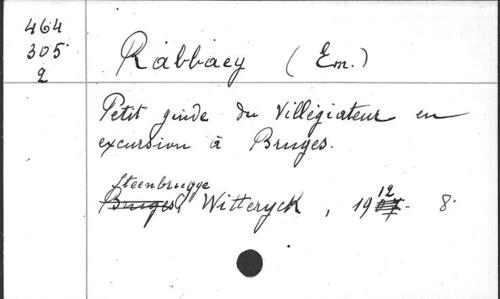 464
305
2
Rabbaey (Em.)
Petit guide du Villégiateur en
excursion à Bruges.
Steenbrugge
Bruges, Witteryck, 1912 - 8°